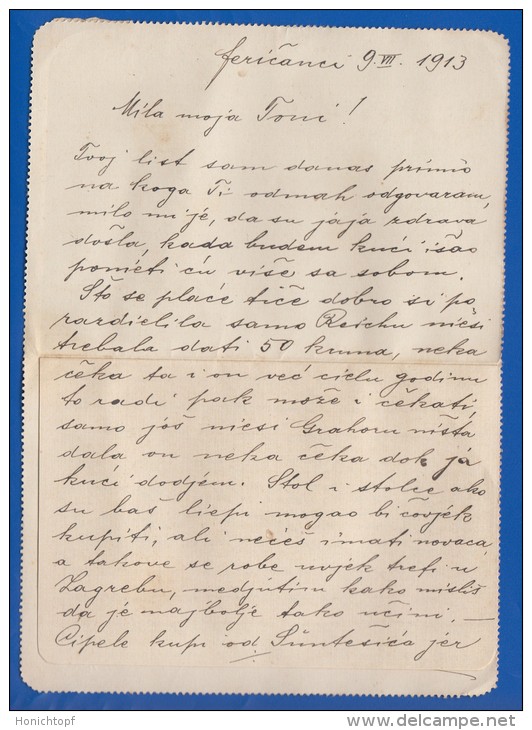 Feričanci 9. VII. 1913
Mila moja Toni!
Tvoj list sam danas primio
na koga Ti odmah odgovaram,
milo mi je, da su jaja zdrava
došla, kada budem kući išao
ponieti ću više sa sobom.
Što se plaće tiče dobro si po
razdielila samo Reichu niesi
trebala dati 50 kruna, neka
čeka ta i on već cielu godinu
to radi pak može i čekati,
samo još niesi Grahoru ništa
dala on neka čeka dok ja
kući dodjem. Stol i stolce ako
su baš liepi mogao bi čovjek
kupiti, ali nećeš imati novaca
a takove se robe uvjek trefi u
Zagrebu, medjutim kako misliš
da je najbolje tako učini. —
Cipele kupi od Süntešića jer
Honichtopf
www.delcampe.net